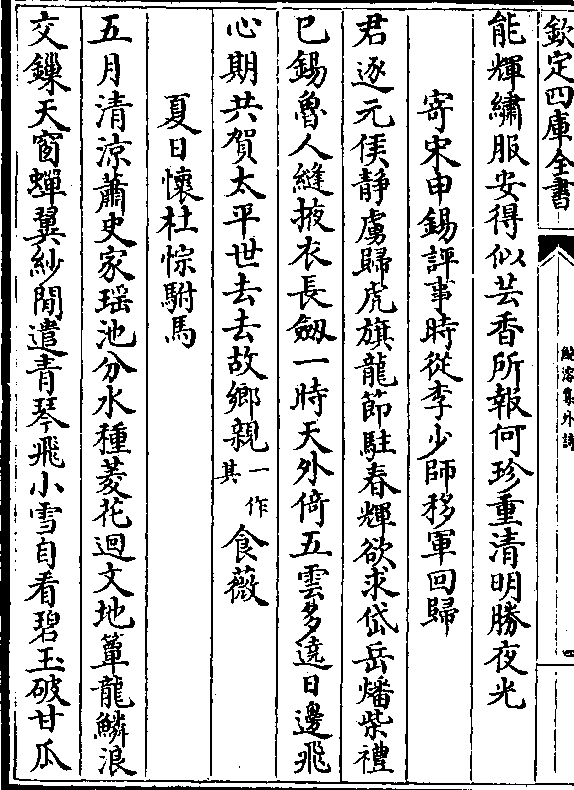 欽定四庫全書
鮑溶集外詩
四
能輝繡服安得似芸香所報何珍重清明勝夜光
寄宋申錫評事時從李少師移軍回歸
君逐元侯静虜歸虎旗龍節駐春輝欲求岱岳燔柴禮
已錫魯人縫掖衣長劔一時天外倚五雲多遶日邊飛
心期共賀太平世去去故鄉親一作其食薇
夏日懷杜悰駙馬
五月清涼蕭史家瑶池分水種菱花迴文地簟龍鱗浪
交鏁天窗蟬翼紗閒遣青琴飛小雪自看碧玉破甘瓜